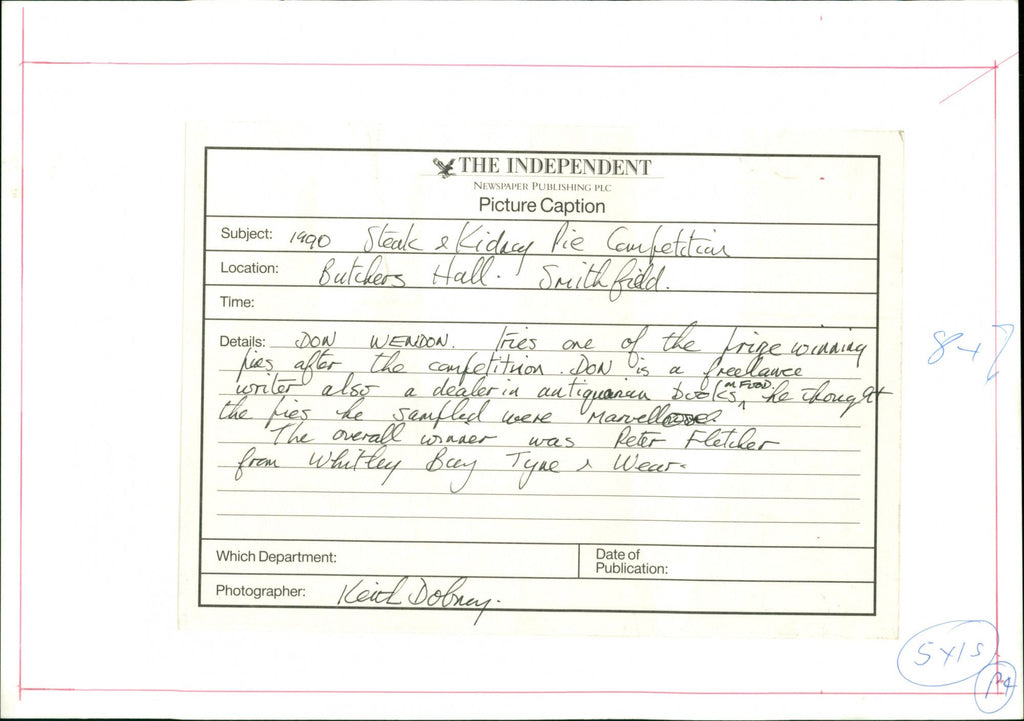 THE INDEPENDENT
NEWSPAPER PUBLISHING PLC
Picture Caption
Subject: 1990 Steak & Kidney Pie Competition
Location: Butchers Hall. Smithfield.
Time:
Details: DON WENDON. tries one of the prize winning
pies after the competition. DON is a freelance
writer also a dealer in antiquarian books ON FOOD. he thought
the pies he sampled were Marvellous.
The overall winner was Peter Fletcher
from Whitley Bay Tyne & Wear.
Which Department:
Date of
Publication:
Photographer: Keith Dobney.
5x15
P4